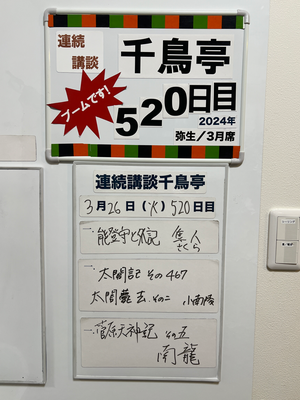 連続
講談
千鳥亭
ブームです!
520日目
2024年
弥生/3月席
連続講談千鳥亭
3月26日(火)520日目
一、
隼人
さくら
一、太閤記 その467
太閤 その二 小南陵
一、菅原天神記 その五
南龍